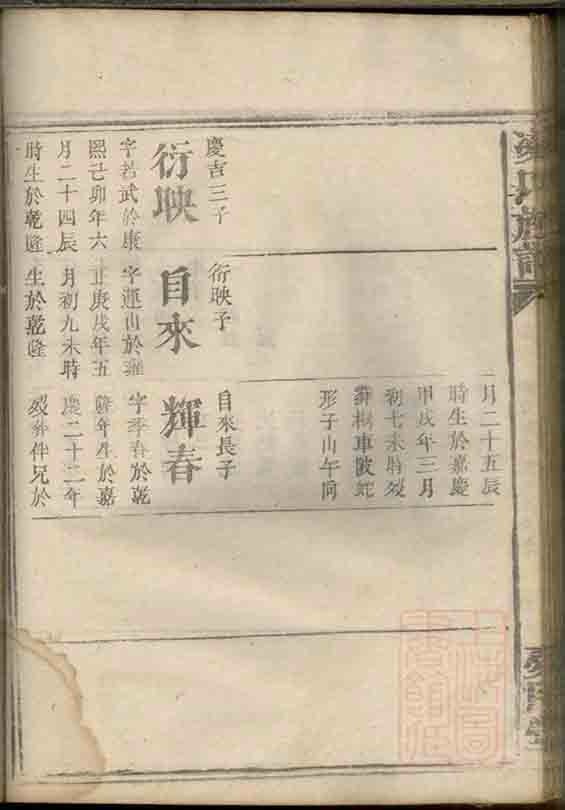 氏族譜
慶吉三子
衍映
字若武於康
熙己卯年六
月二十四辰
時生於乾隆
衍映子
自來
字運山於雍
正庚戌年五
月初九未時
生於乾隆
月二十五辰
時生於嘉慶
甲戌年三月
初七未時歿
葬椒車陂蛇
形子山午向
自來長子
輝春
字季春於乾
隆年生於嘉
慶二十二年
歿葬伴兄於
上海圖
書館藏